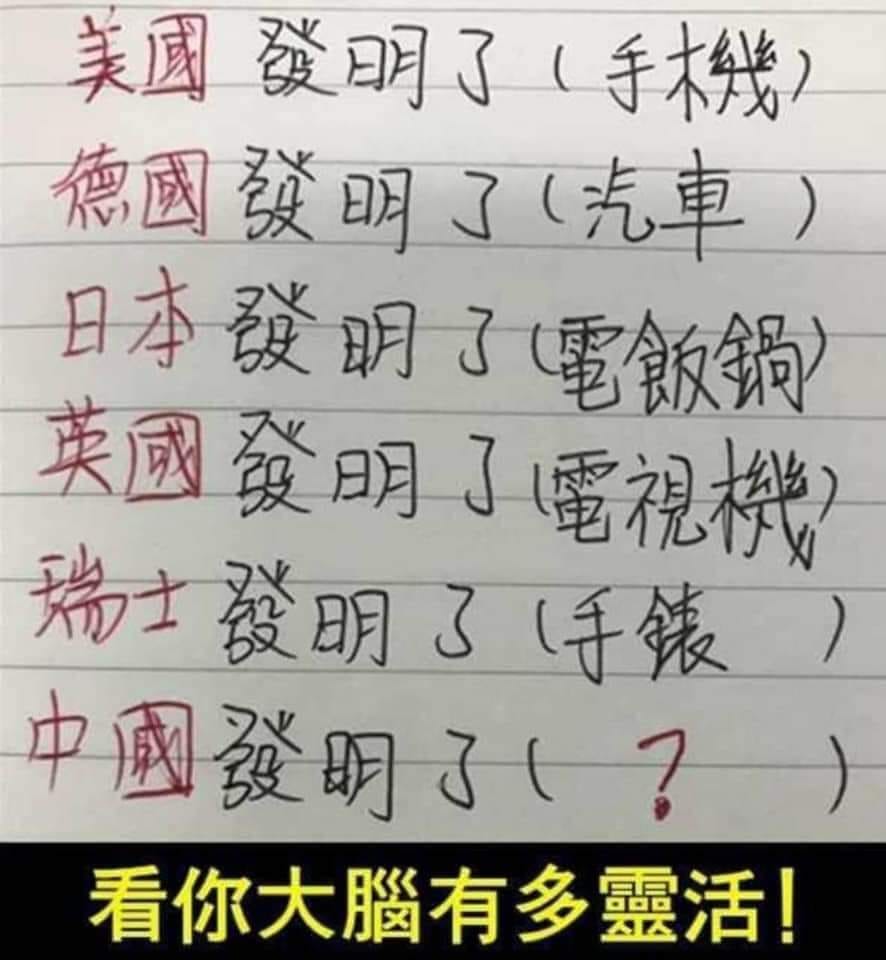 美國 發明了(手機)
德國 發明了(汽車)
日本 發明了(電飯鍋)
英國 發明了(電視機)
瑞士 發明了(手錶)
中國 發明了(?)
看你大腦有多靈活!